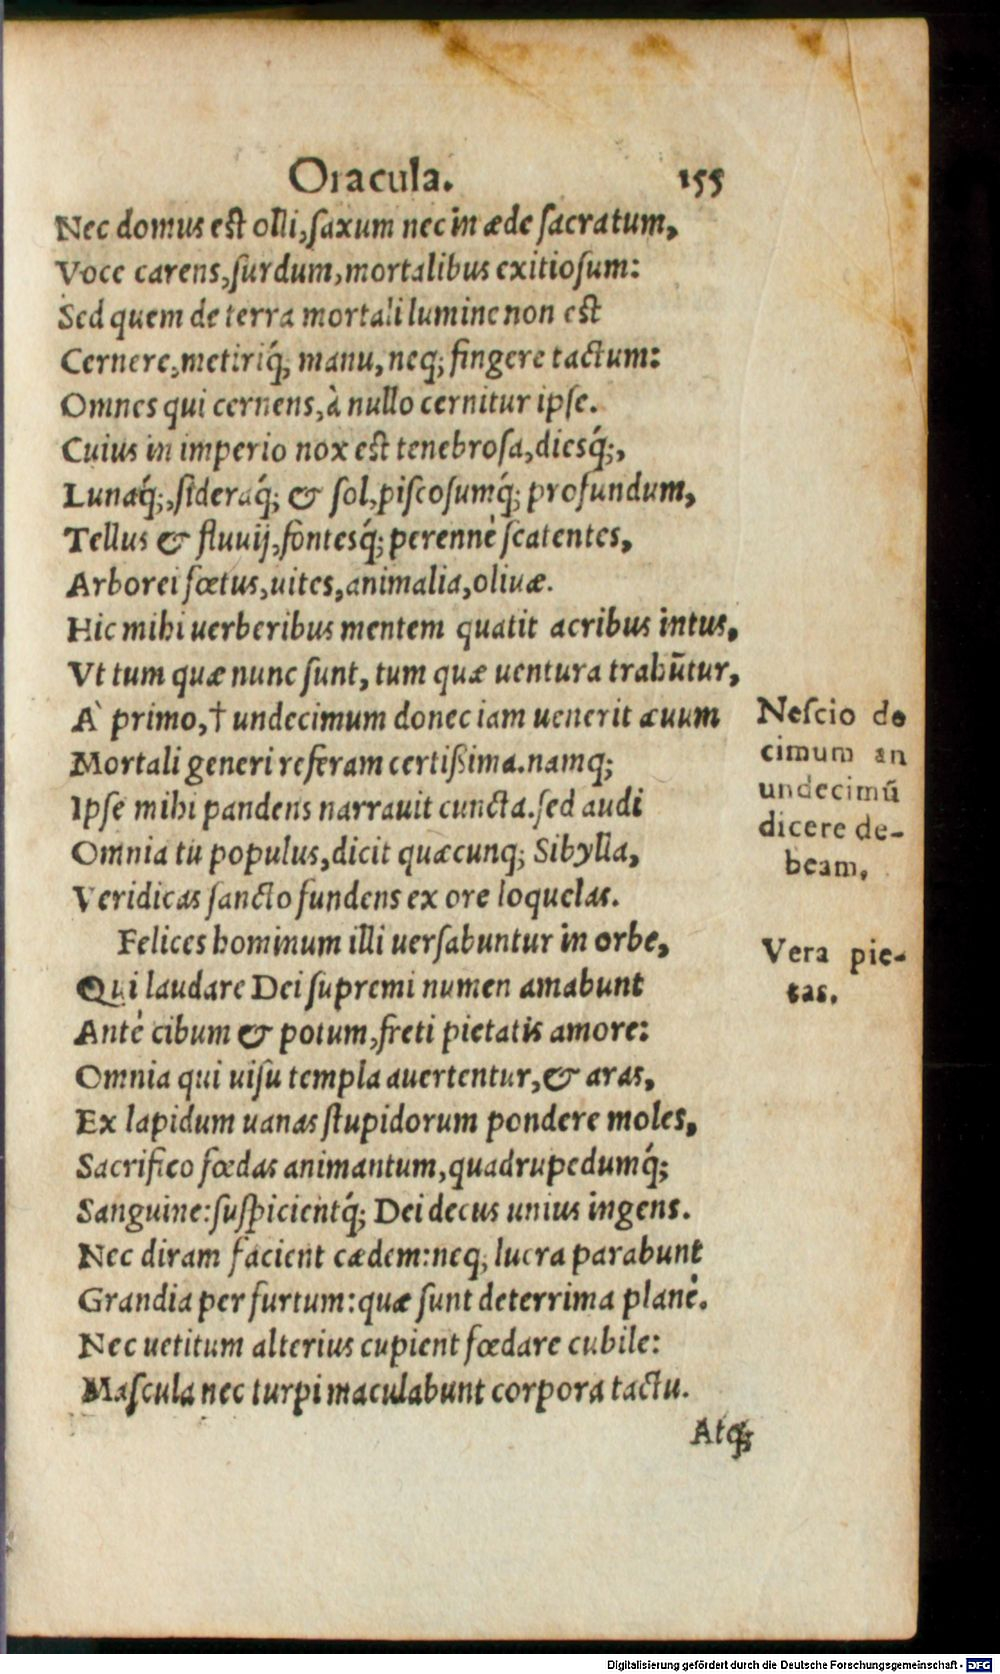 Oracula. 155
Nec domus est olli, saxum nec in æde sacratum,
Voce carens, surdum, mortalibus exitiosum:
Sed quem de terra mortali lumine non est
Cernere, metiriq́; manu, neq; fingere tactum:
Omnes qui cernens, à nullo cernitur ipse.
Cuius in imperio nox est tenebrosa, diesq́;,
Lunaq́;, sideraq́; & sol, piscosumq́; profundum,
Tellus & fluuij, fontesq́; perennè scatentes,
Arborei fœtus, uites, animalia, oliuæ.
Hic mihi uerberibus mentem quatit acribus intus,
Vt tum quæ nunc sunt, tum quæ uentura trahūtur,
À primo, † undecimum donec iam uenerit æuum
Mortali generi referam certißima. namq;
Ipse mihi pandens narrauit cuncta. sed audi
Omnia tu populus, dicit quæcunq; Sibylla,
Veridicas sancto fundens ex ore loquelas.
Felices hominum illi uersabuntur in orbe,
Qui laudare Dei supremi numen amabunt
Antè cibum & potum, freti pietatis amore:
Omnia qui uisu templa auertentur, & aras,
Ex lapidum uanas stupidorum pondere moles,
Sacrifico fœdas animantum, quadrupedumq́;
Sanguine: suspicientq́; Dei decus unius ingens.
Nec diram facient cædem: neq; lucra parabunt
Grandia per furtum: quæ sunt deterrima planè.
Nec uetitum alterius cupient fœdare cubile:
Mascula nec turpi maculabunt corpora tactu.
Atq;
Nescio de
cimum an
undecimū
dicere de-
beam,
Vera pie-
tas.
Digitalisierung gefördert durch die Deutsche Forschungsgemeinschaft - DFG